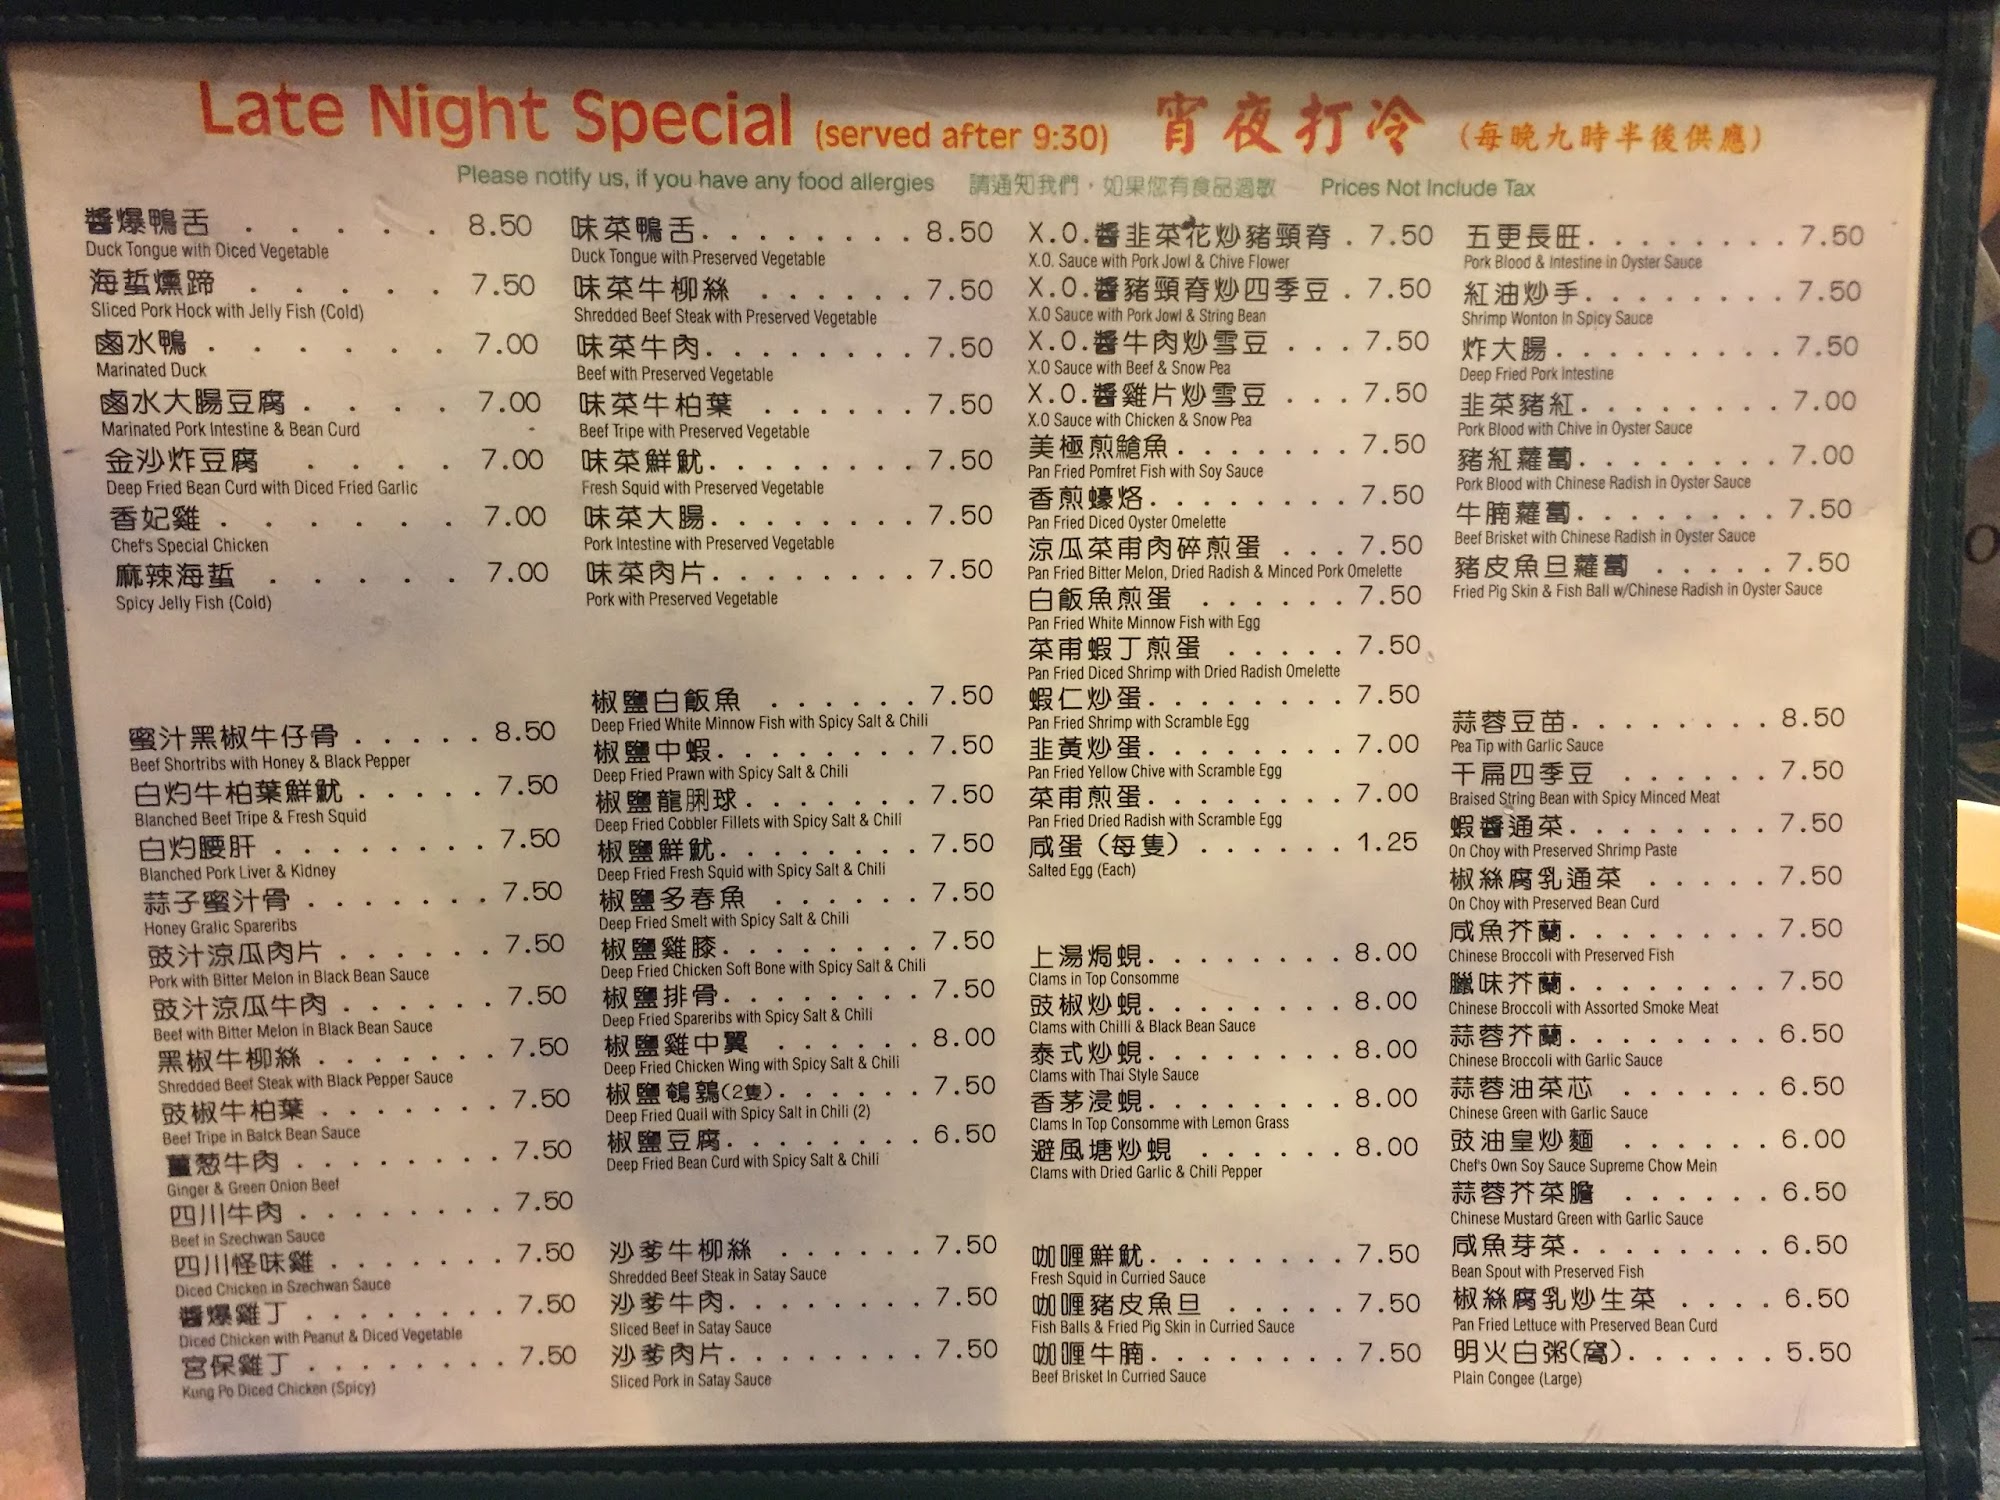 Late Night Special (served after 9:30) 宵夜打冷 (每晚九時半後供應)
Please notify us, if you have any food allergies 請通知我們，如果您有食品過敏 Prices Not Include Tax
醬爆鴨舌 . . . . . 8.50
Duck Tongue with Diced Vegetable
海蜇燻蹄 . . . . . 7.50
Sliced Pork Hock with Jelly Fish (Cold)
鹵水鴨 . . . . . . 7.00
Marinated Duck
鹵水大腸豆腐 . . . . 7.00
Marinated Pork Intestine & Bean Curd
金沙炸豆腐 . . . . 7.00
Deep Fried Bean Curd with Diced Fried Garlic
香妃雞 . . . . . . 7.00
Chef's Special Chicken
麻辣海蜇 . . . . . 7.00
Spicy Jelly Fish (Cold)
蜜汁黑椒牛仔骨 . . . . . 8.50
Beef Shortribs with Honey & Black Pepper
白灼牛柏葉鮮魷 . . . . . 7.50
Blanched Beef Tripe & Fresh Squid
白灼腰肝 . . . . . . . . 7.50
Blanched Pork Liver & Kidney
蒜子蜜汁骨 . . . . . . . 7.50
Honey Gralic Spareribs
豉汁涼瓜肉片 . . . . . . 7.50
Pork with Bitter Melon in Black Bean Sauce
豉汁涼瓜牛肉 . . . . . . 7.50
Beef with Bitter Melon in Black Bean Sauce
黑椒牛柳絲 . . . . . . . 7.50
Shredded Beef Steak with Black Pepper Sauce
豉椒牛柏葉 . . . . . . . 7.50
Beef Tripe in Balck Bean Sauce
薑葱牛肉 . . . . . . . . 7.50
Ginger & Green Onion Beef
四川牛肉 . . . . . . . . 7.50
Beef in Szechwan Sauce
四川怪味雞 . . . . . . . 7.50
Diced Chicken in Szechwan Sauce
醬爆雞丁 . . . . . . . . 7.50
Diced Chicken with Peanut & Diced Vegetable
宮保雞丁 . . . . . . . . 7.50
Kung Po Diced Chicken (Spicy)
味菜鴨舌. . . . . . . . 8.50
Duck Tongue with Preserved Vegetable
味菜牛柳絲 . . . . . . 7.50
Shredded Beef Steak with Preserved Vegetable
味菜牛肉. . . . . . . . 7.50
Beef with Preserved Vegetable
味菜牛柏葉 . . . . . . 7.50
Beef Tripe with Preserved Vegetable
味菜鮮魷. . . . . . . . 7.50
Fresh Squid with Preserved Vegetable
味菜大腸. . . . . . . . 7.50
Pork Intestine with Preserved Vegetable
味菜肉片. . . . . . . . 7.50
Pork with Preserved Vegetable
椒鹽白飯魚 . . . . . . 7.50
Deep Fried White Minnow Fish with Spicy Salt & Chili
椒鹽中蝦. . . . . . . . 7.50
Deep Fried Prawn with Spicy Salt & Chili
椒鹽龍脷球. . . . . . . 7.50
Deep Fried Cobbler Fillets with Spicy Salt & Chili
椒鹽鮮魷. . . . . . . . 7.50
Deep Fried Fresh Squid with Spicy Salt & Chili
椒鹽多春魚 . . . . . . 7.50
Deep Fried Smelt with Spicy Salt & Chili
椒鹽雞膝. . . . . . . . 7.50
Deep Fried Chicken Soft Bone with Spicy Salt & Chili
椒鹽排骨. . . . . . . . 7.50
Deep Fried Spareribs with Spicy Salt & Chili
椒鹽雞中翼 . . . . . . 8.00
Deep Fried Chicken Wing with Spicy Salt & Chili
椒鹽鵪鶉(2隻). . . . . . 7.50
Deep Fried Quail with Spicy Salt in Chili (2)
椒鹽豆腐. . . . . . . . 6.50
Deep Fried Bean Curd with Spicy Salt & Chili
沙爹牛柳絲 . . . . . . 7.50
Shredded Beef Steak in Satay Sauce
沙爹牛肉. . . . . . . . 7.50
Sliced Beef in Satay Sauce
沙爹肉片. . . . . . . . 7.50
Sliced Pork in Satay Sauce
X.O.醬韭菜花炒豬頸脊 . 7.50
X.O. Sauce with Pork Jowl & Chive Flower
X.O.醬豬頸脊炒四季豆 . 7.50
X.O Sauce with Pork Jowl & String Bean
X.O.醬牛肉炒雪豆 . . . 7.50
X.O Sauce with Beef & Snow Pea
X.O.醬雞片炒雪豆 . . . 7.50
X.O Sauce with Chicken & Snow Pea
美極煎鯧魚. . . . . . . 7.50
Pan Fried Pomfret Fish with Soy Sauce
香煎蠔烙. . . . . . . . 7.50
Pan Fried Diced Oyster Omelette
涼瓜菜甫肉碎煎蛋 . . . 7.50
Pan Fried Bitter Melon, Dried Radish & Minced Pork Omelette
白飯魚煎蛋 . . . . . . 7.50
Pan Fried White Minnow Fish with Egg
菜甫蝦丁煎蛋 . . . . . 7.50
Pan Fried Diced Shrimp with Dried Radish Omelette
蝦仁炒蛋. . . . . . . . 7.50
Pan Fried Shrimp with Scramble Egg
韭黃炒蛋. . . . . . . . 7.00
Pan Fried Yellow Chive with Scramble Egg
菜甫煎蛋. . . . . . . . 7.00
Pan Fried Dried Radish with Scramble Egg
咸蛋（每隻） . . . . . . 1.25
Salted Egg (Each)
上湯焗蜆. . . . . . . . 8.00
Clams in Top Consomme
豉椒炒蜆. . . . . . . . 8.00
Clams with Chilli & Black Bean Sauce
泰式炒蜆. . . . . . . . 8.00
Clams with Thai Style Sauce
香茅浸蜆. . . . . . . . 8.00
Clams In Top Consomme with Lemon Grass
避風塘炒蜆 . . . . . . 8.00
Clams with Dried Garlic & Chili Pepper
咖喱鮮魷. . . . . . . . 7.50
Fresh Squid in Curried Sauce
咖喱豬皮魚旦 . . . . . 7.50
Fish Balls & Fried Pig Skin in Curried Sauce
咖喱牛腩. . . . . . . . 7.50
Beef Brisket In Curried Sauce
五更長旺. . . . . . . . 7.50
Pork Blood & Intestine in Oyster Sauce
紅油炒手. . . . . . . . 7.50
Shrimp Wonton In Spicy Sauce
炸大腸. . . . . . . . . 7.50
Deep Fried Pork Intestine
韭菜豬紅. . . . . . . . 7.00
Pork Blood with Chive in Oyster Sauce
豬紅蘿蔔. . . . . . . . 7.00
Pork Blood with Chinese Radish in Oyster Sauce
牛腩蘿蔔. . . . . . . . 7.50
Beef Brisket with Chinese Radish in Oyster Sauce
豬皮魚旦蘿蔔 . . . . . 7.50
Fried Pig Skin & Fish Ball w/Chinese Radish in Oyster Sauce
蒜蓉豆苗. . . . . . . . 8.50
Pea Tip with Garlic Sauce
干扁四季豆 . . . . . . 7.50
Braised String Bean with Spicy Minced Meat
蝦醬通菜. . . . . . . . 7.50
On Choy with Preserved Shrimp Paste
椒絲腐乳通菜 . . . . . 7.50
On Choy with Preserved Bean Curd
咸魚芥蘭. . . . . . . . 7.50
Chinese Broccoli with Preserved Fish
臘味芥蘭. . . . . . . . 7.50
Chinese Broccoli with Assorted Smoke Meat
蒜蓉芥蘭. . . . . . . . 6.50
Chinese Broccoli with Garlic Sauce
蒜蓉油菜芯 . . . . . . 6.50
Chinese Green with Garlic Sauce
豉油皇炒麵 . . . . . . 6.00
Chef's Own Soy Sauce Supreme Chow Mein
蒜蓉芥菜膽 . . . . . . 6.50
Chinese Mustard Green with Garlic Sauce
咸魚芽菜. . . . . . . . 6.50
Bean Spout with Preserved Fish
椒絲腐乳炒生菜 . . . . 6.50
Pan Fried Lettuce with Preserved Bean Curd
明火白粥(窩). . . . . . 5.50
Plain Congee (Large)